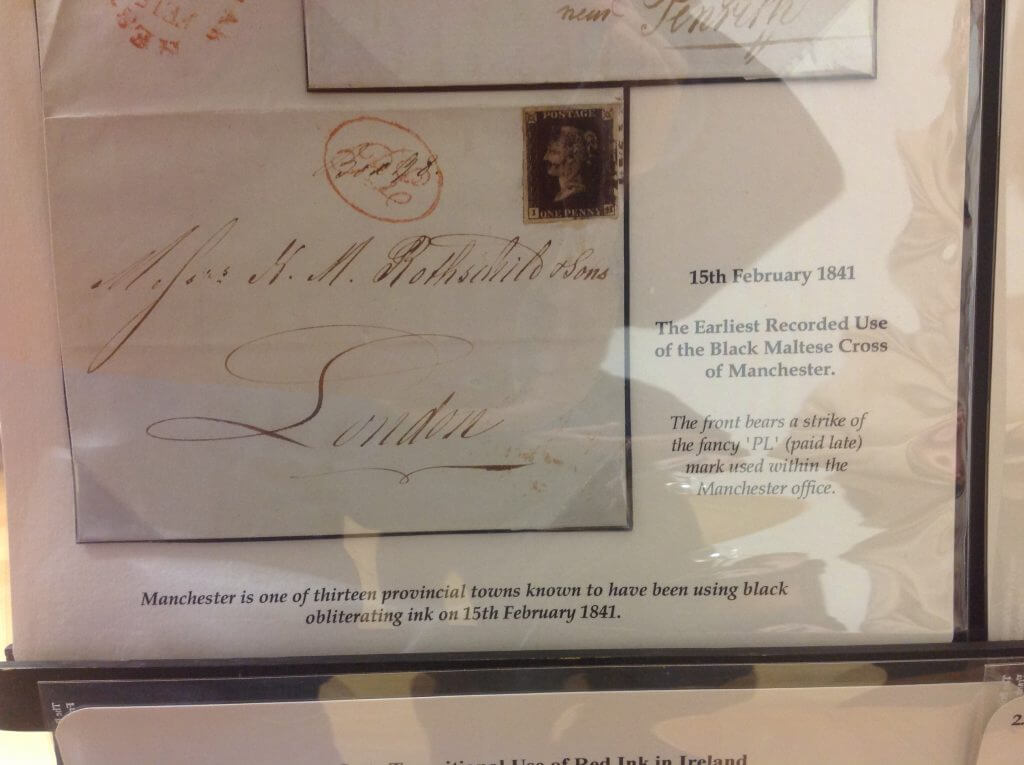 near Penrith
POSTAGE
ONE PENNY
Messrs N. M. Rothschild & Sons
London
15th February 1841
The Earliest Recorded Use
of the Black Maltese Cross
of Manchester.
The front bears a strike of
the fancy 'PL' (paid late)
mark used within the
Manchester office.
Manchester is one of thirteen provincial towns known to have been using black
obliterating ink on 15th February 1841.
Use of Red Ink in Ireland